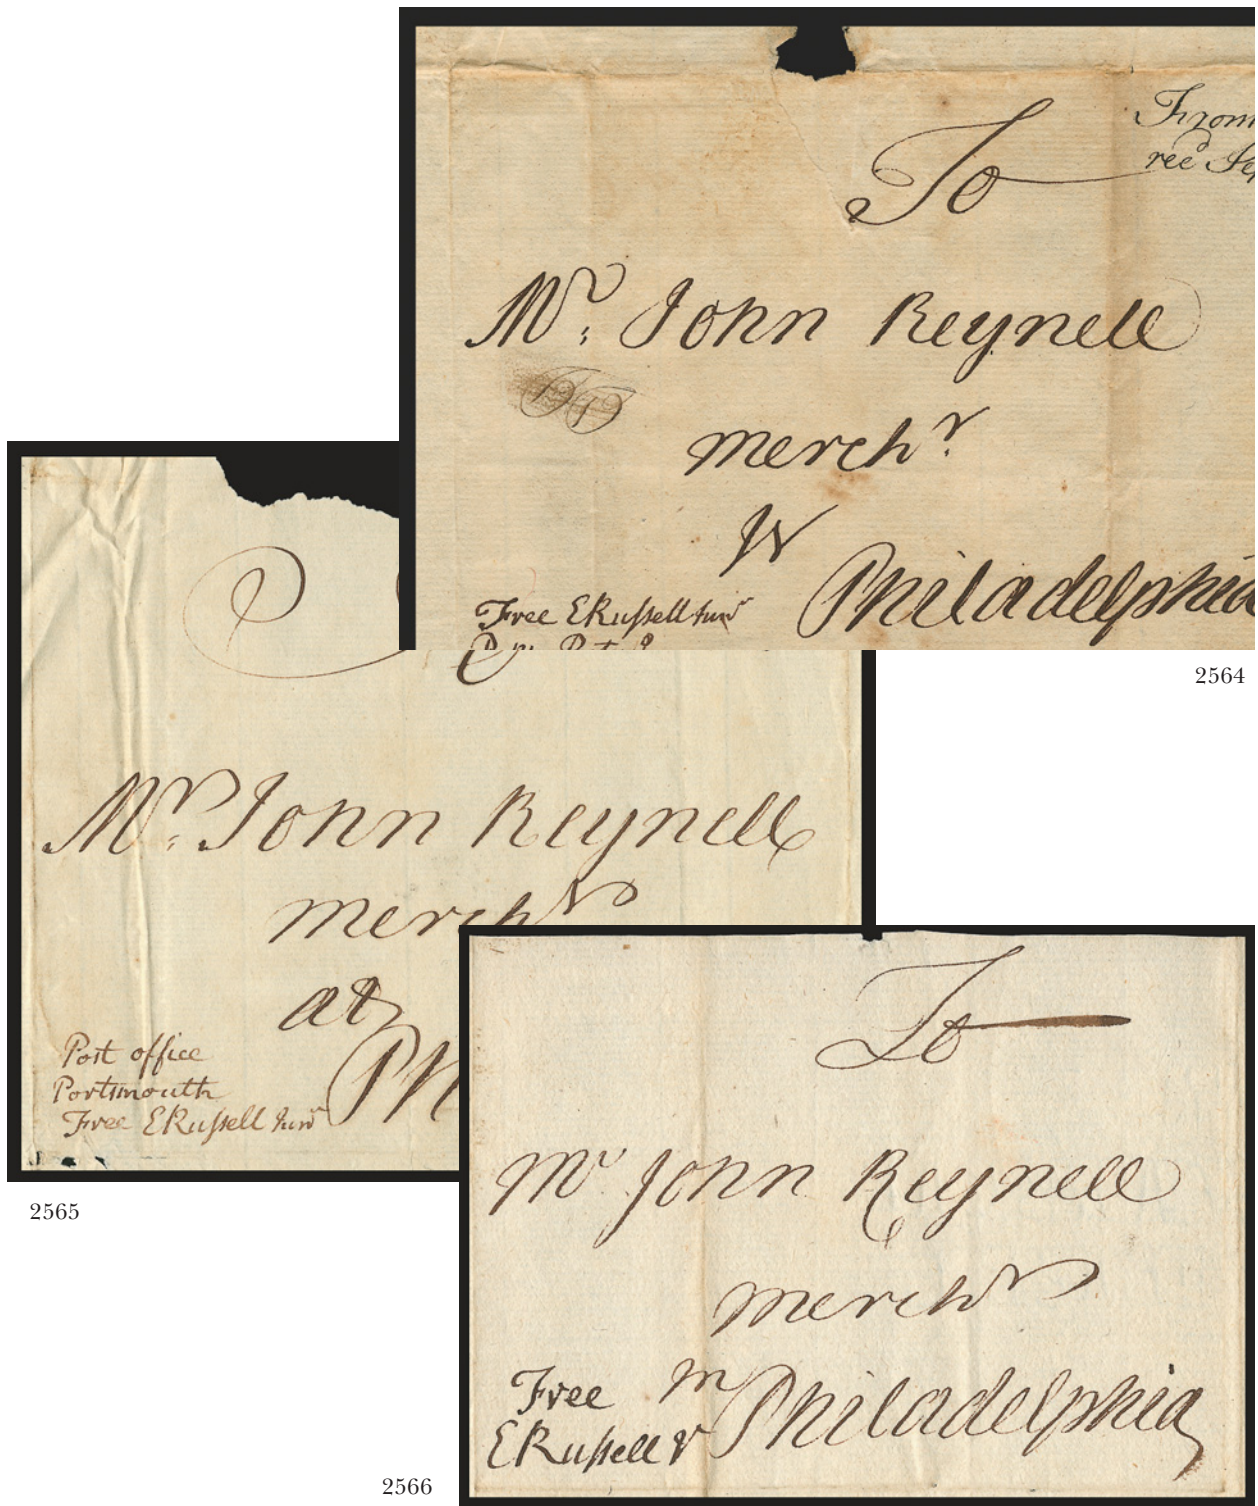 To
From
rec^d Sep
M^r. John Reynell
merch^r.
in
Philadelphia
Free ERussell Jun^r
2564
M^r. John Reynell
merch^r
at
Ph
Post office
Portsmouth
Free ERussell Jun^r
2565
To
M^r John Reynell
merch^r
in Philadelphia
Free
ERussell
2566